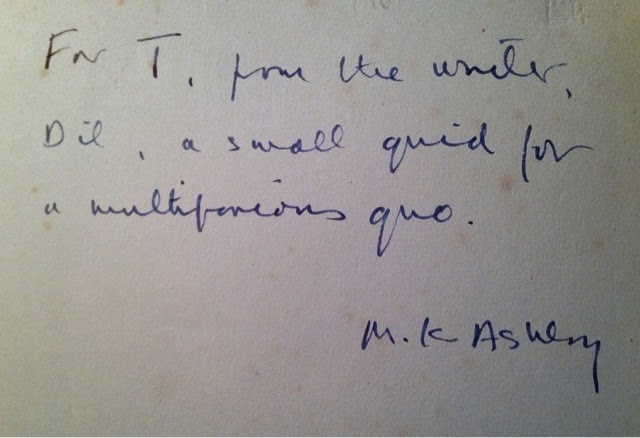 For T, from the writer,
Dil, a small quid for
a multifarious quo.
M.K Ashby